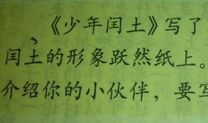 《少年闰土》写了
闰土的形象跃然纸上。
介绍你的小伙伴，要写